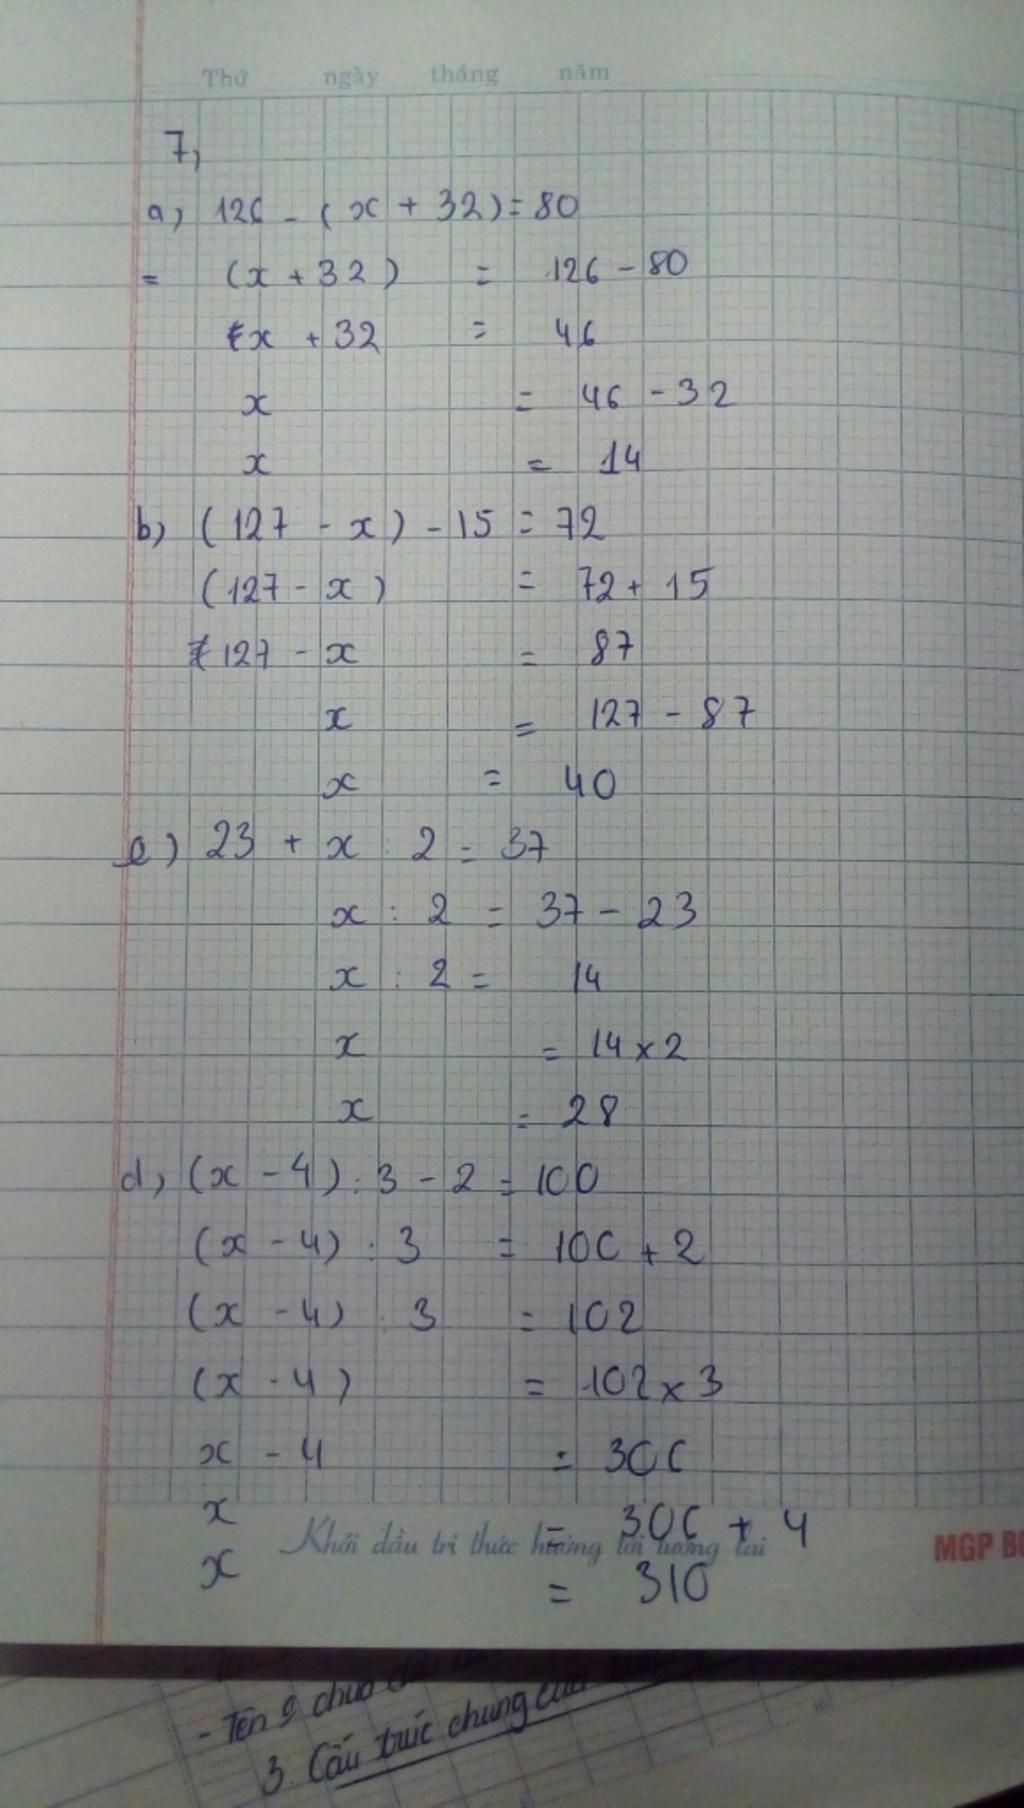 Thứ ngày tháng năm
7,
a) 126 - (x + 32) = 80
= (x + 32) = 126 - 80
x + 32 = 46
x = 46 - 32
x = 14
b) (127 - x) - 15 = 72
(127 - x) = 72 + 15
127 - x = 87
x = 127 - 87
x = 40
c) 23 + x : 2 = 37
x : 2 = 37 - 23
x : 2 = 14
x = 14 x 2
x = 28
d) (x - 4) : 3 - 2 = 100
(x - 4) : 3 = 100 + 2
(x - 4) : 3 = 102
(x - 4) = 102 x 3
x - 4 = 306
x = 306 + 4
Khởi đầu tri thức hướng tới tương lai
MGP
x = 310
- Tên chua
3. Cấu trúc chung của